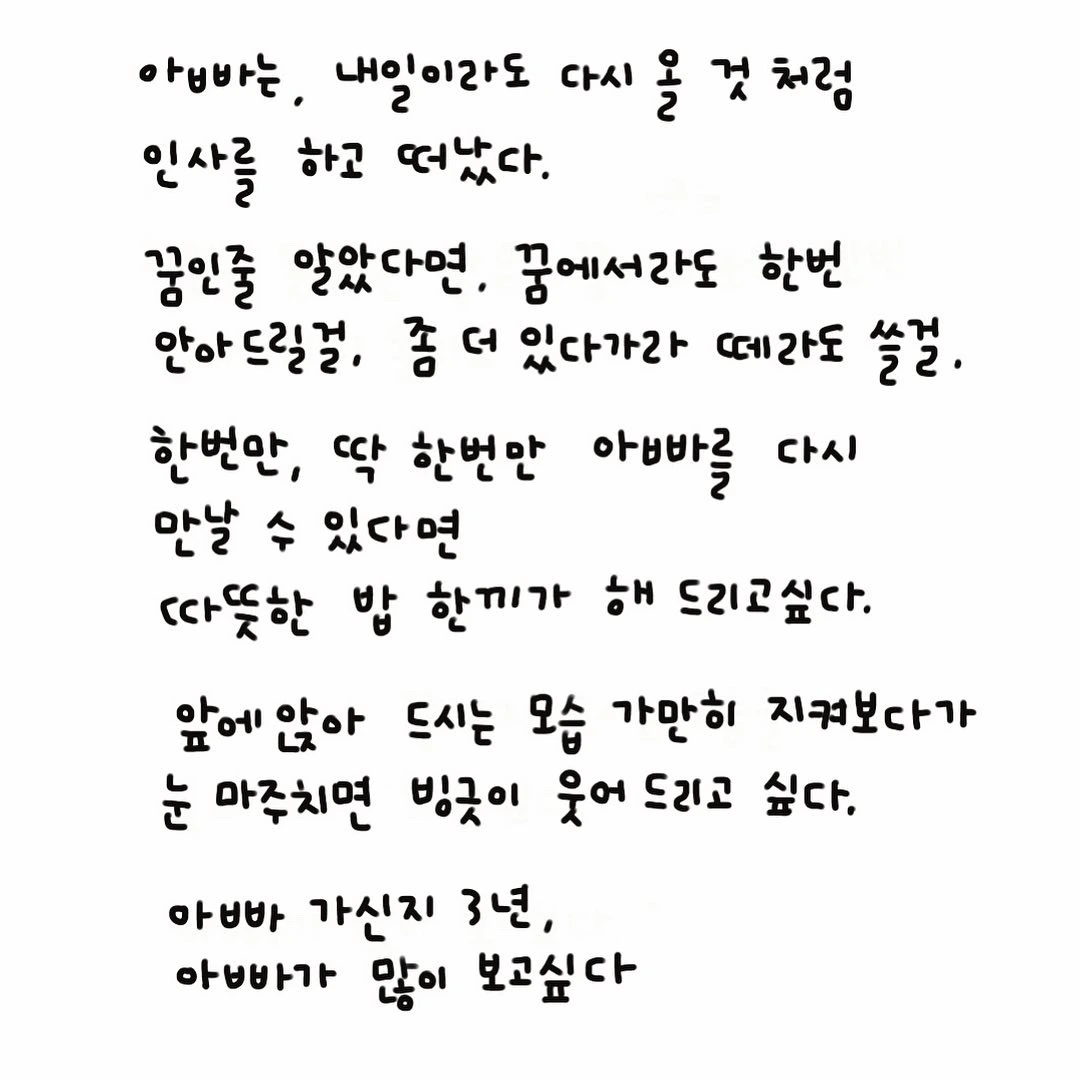 아빠는, 내일이라도 다시 올 것 처럼
인사를 하고 떠났다.
꿈인줄 알았다면, 꿈에서라도 한번
안아드릴걸, 좀 더 있다가라 떼라도 쓸걸,
한번만, 딱 한번만 아빠를 다시
만날 수 있다면
따뜻한 밥 한끼가 해 드리고싶다.
앞에 앉아 드시는 모습 가만히 지켜보다가
눈 마주치면 빙긋이 웃어 드리고 싶다.
아빠 가신지 3년,
아빠가 많이 보고싶다